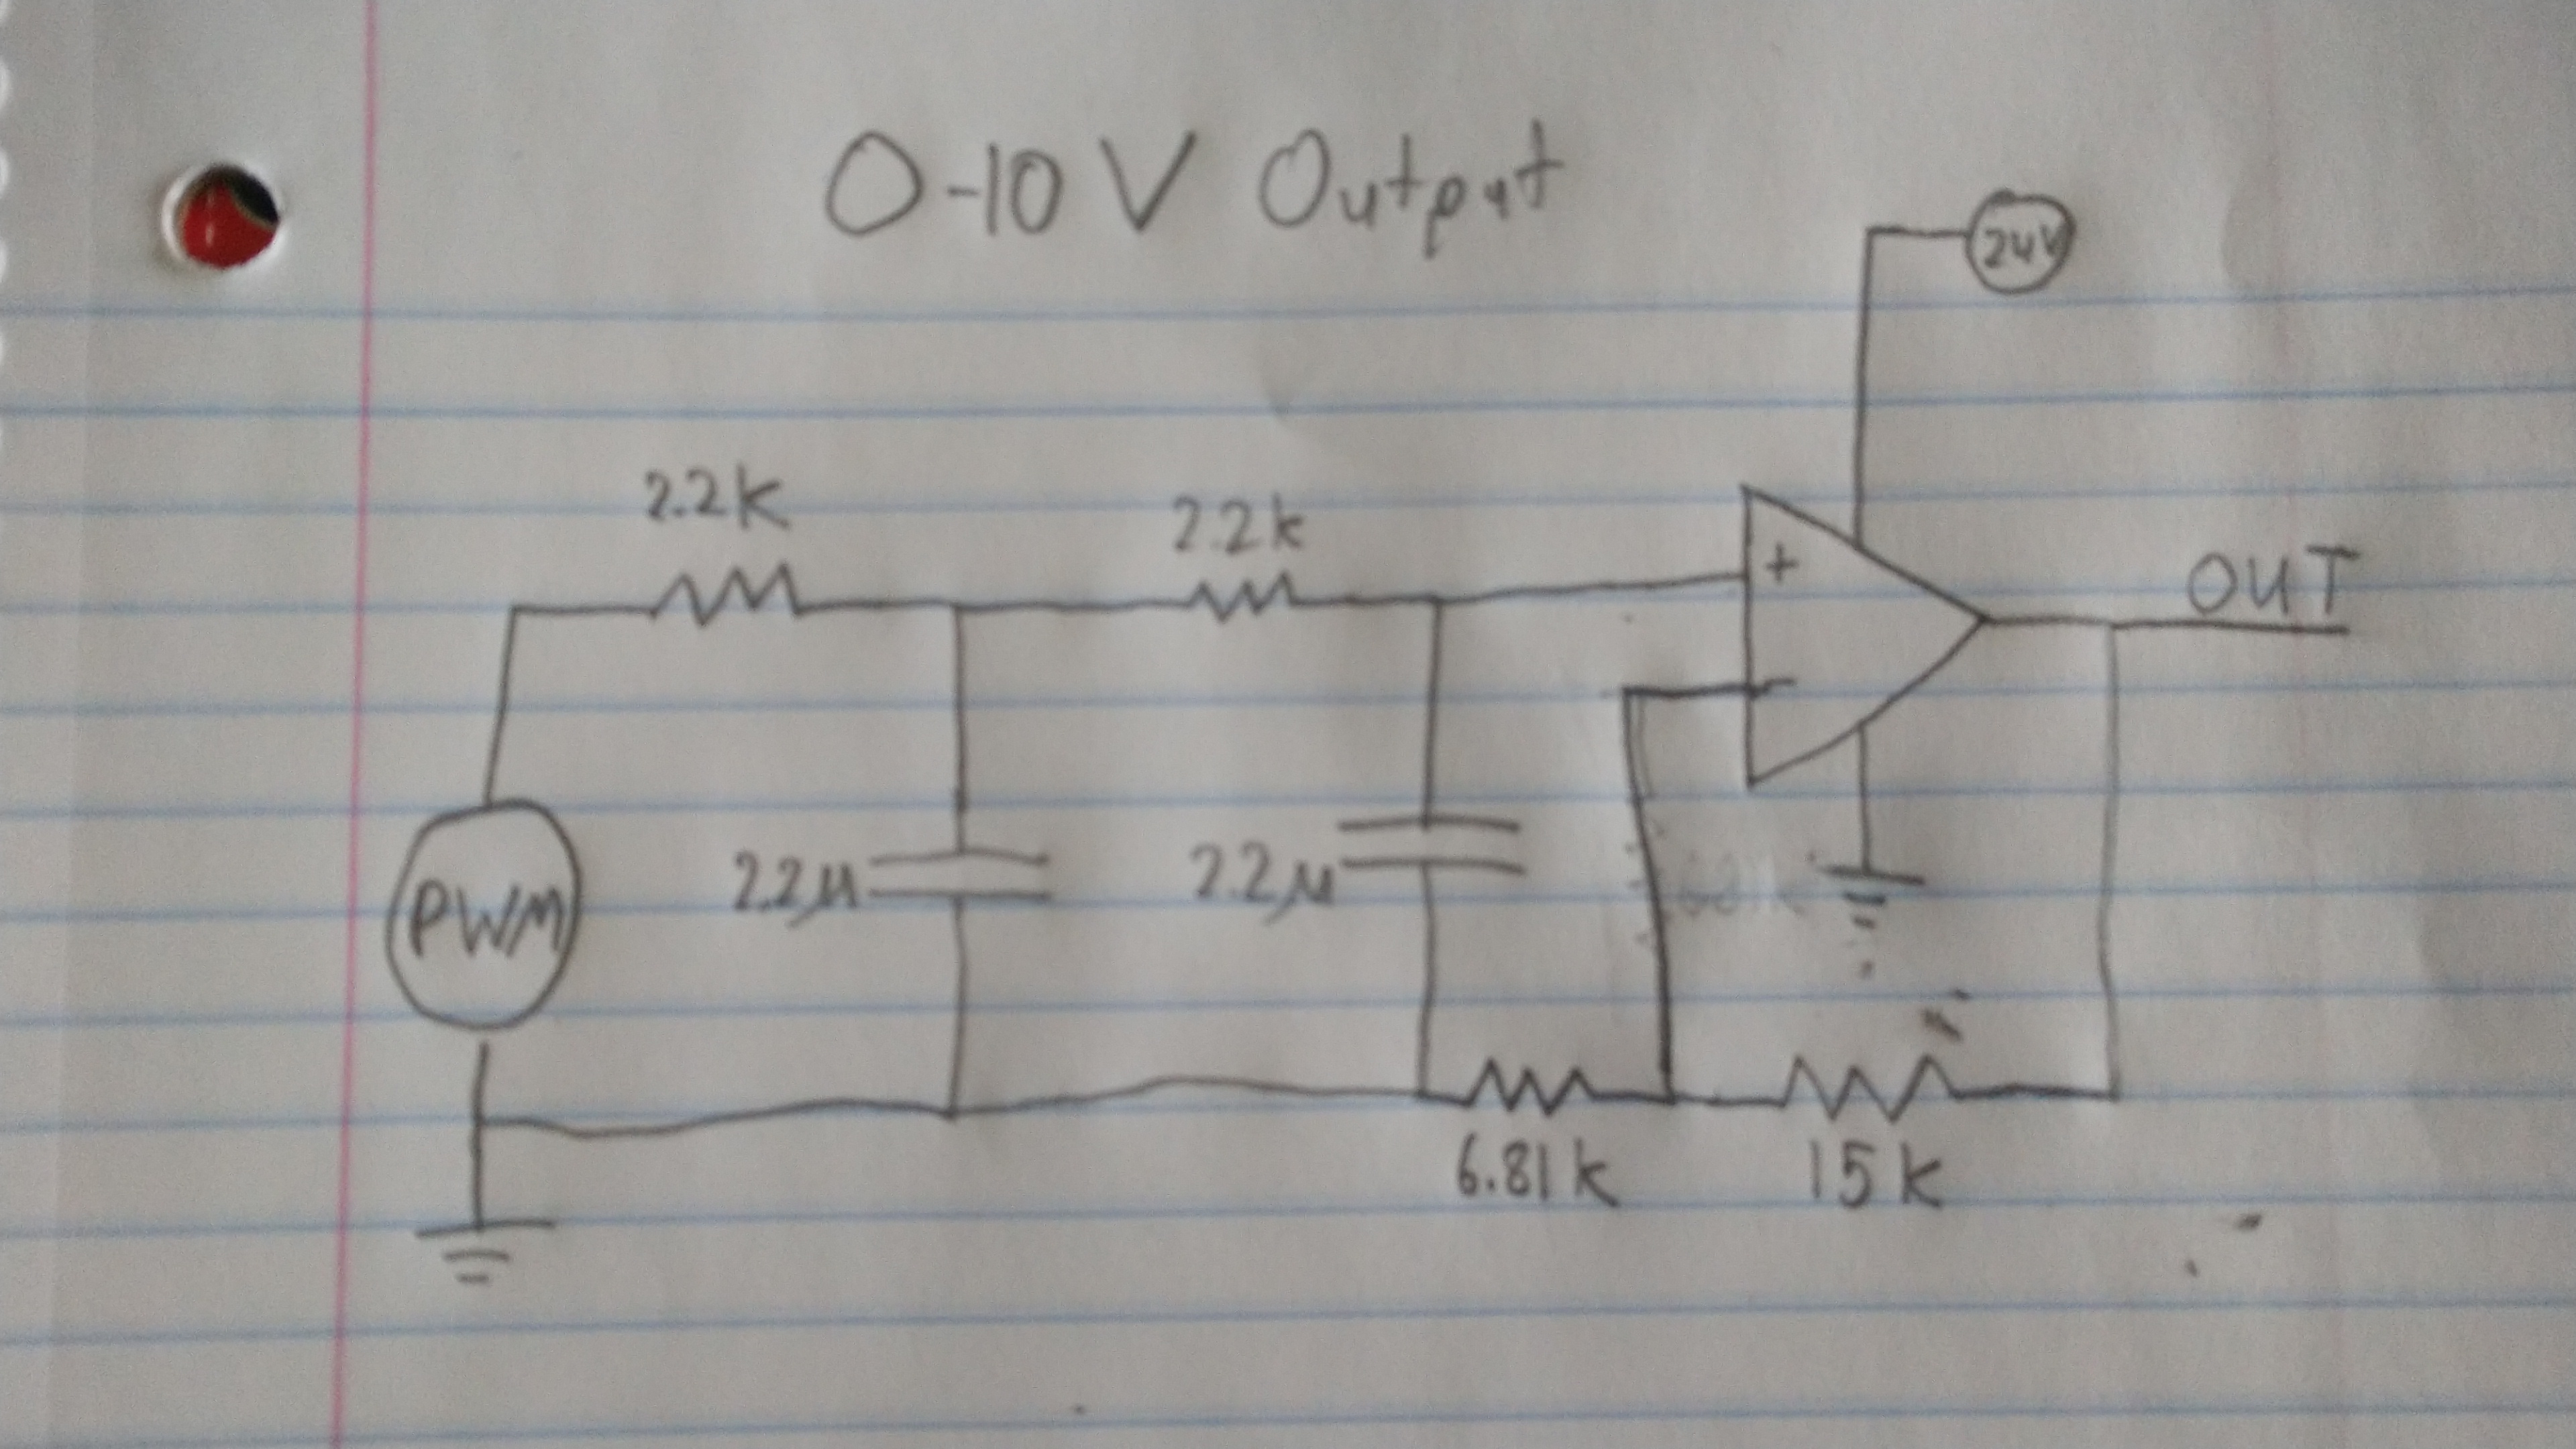 0-10 V Output
24V
2.2k
2.2k
+
-
OUT
PWM
2.2µ
2.2µ
6.81k
15k